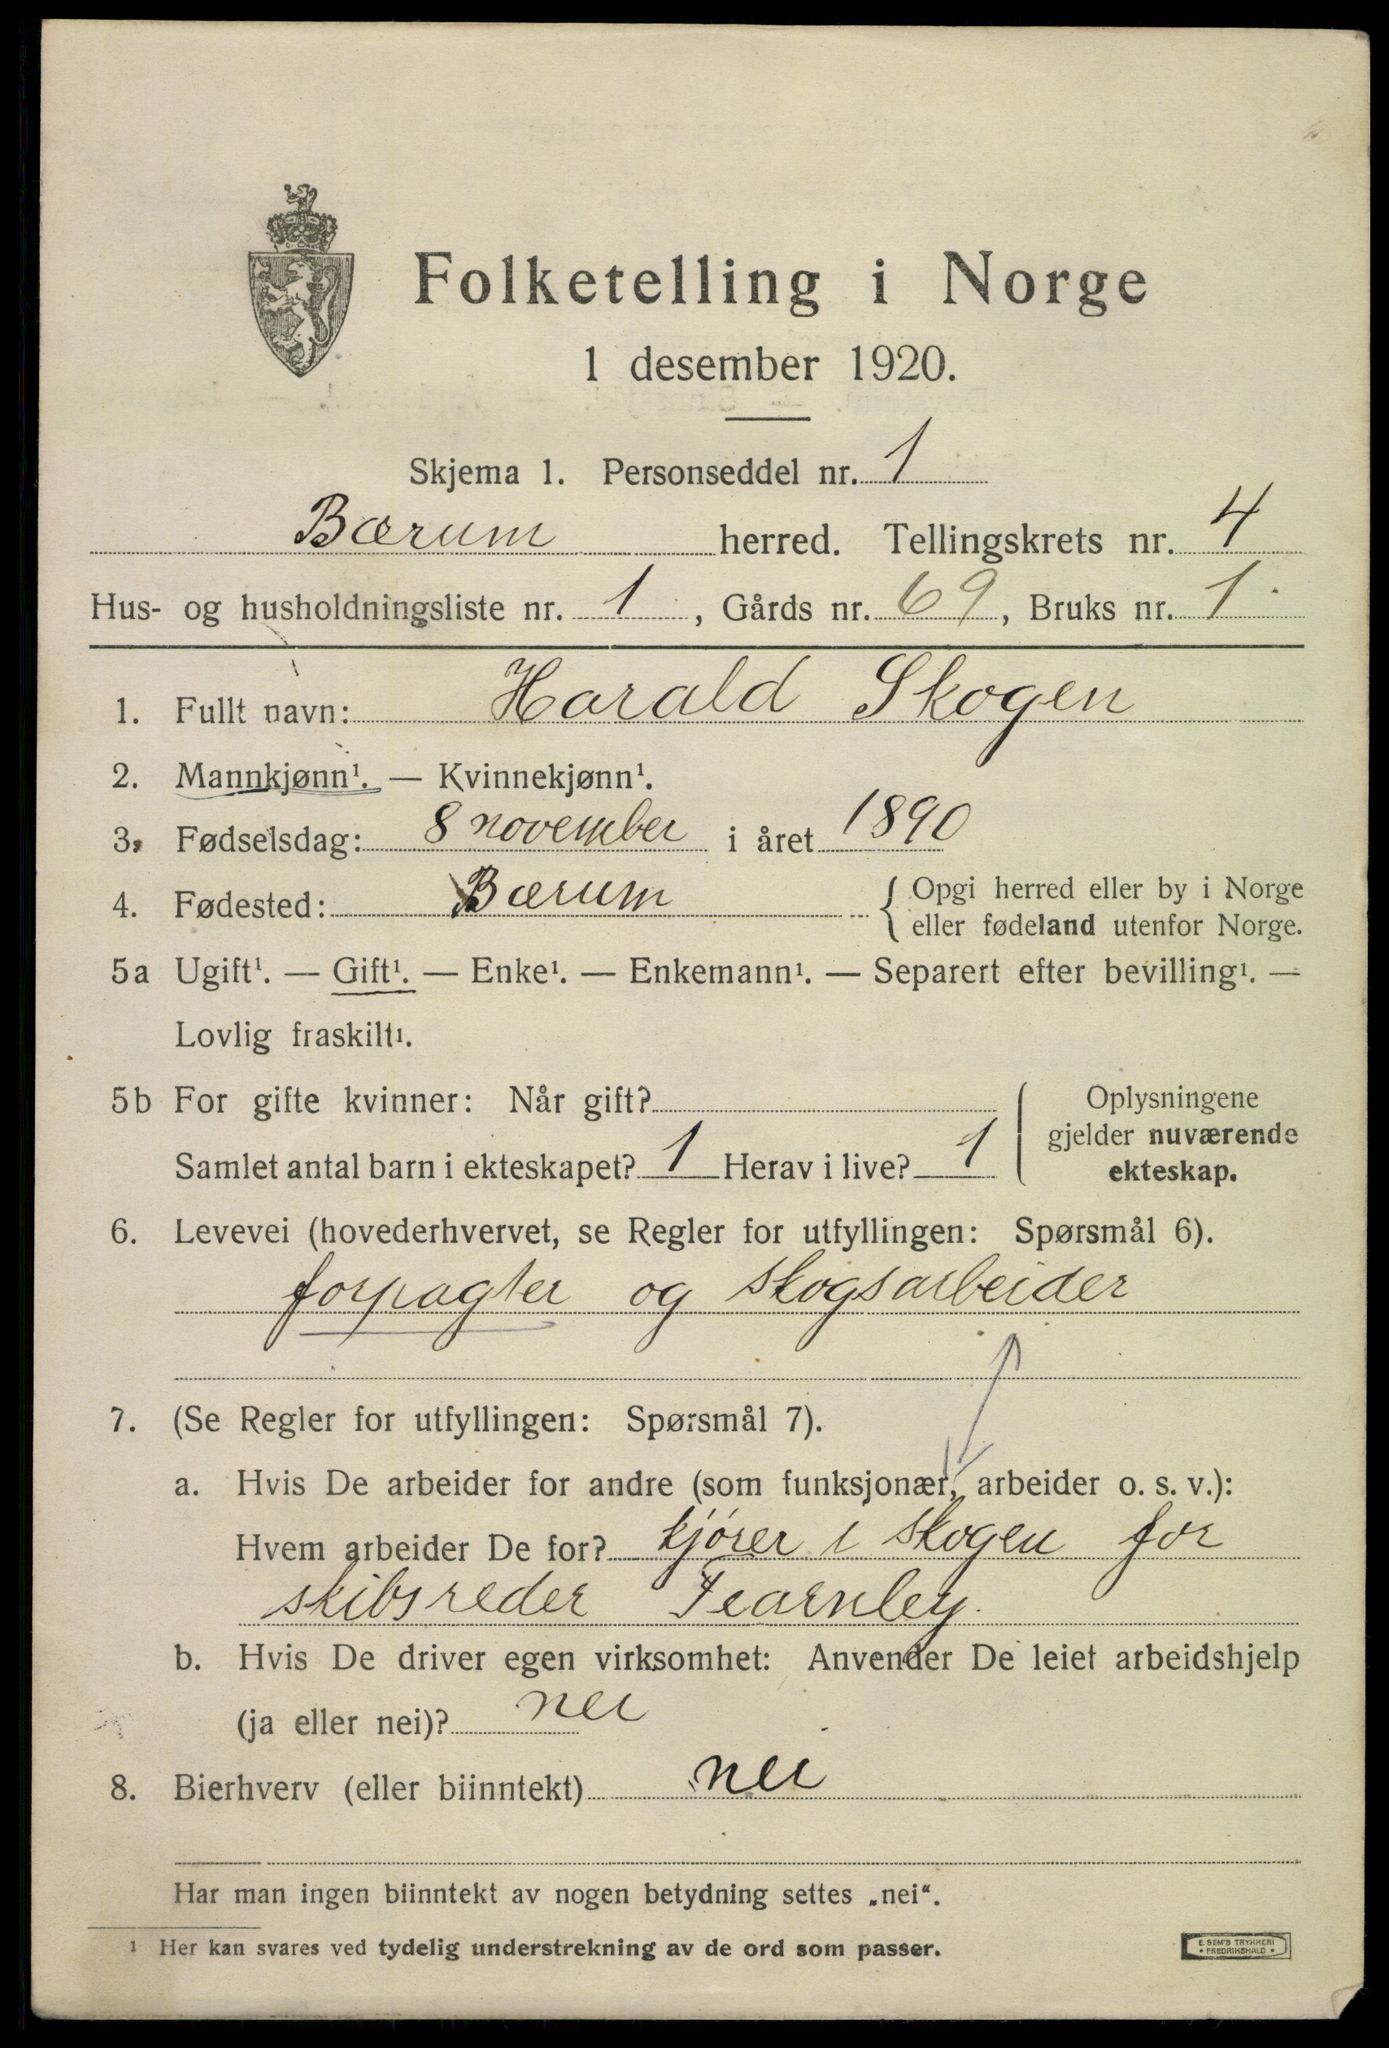 Folketelling i Norge
1 desember 1920.
Skjema 1. Personseddel nr. 1
Bærum herred. Tellingskrets nr. 4
Hus- og husholdningsliste nr. 1, Gårds nr. 69, Bruks nr. 1
1. Fullt navn: Harald Skogen
2. Mannkjønn¹. — Kvinnekjønn¹.
3. Fødselsdag: 8 november i året 1890
4. Fødested: Bærum { Opgi herred eller by i Norge
eller fødeland utenfor Norge.
5a Ugift¹. — Gift¹. — Enke¹. — Enkemann¹. — Separert efter bevilling¹. —
Lovlig fraskilt¹.
5b For gifte kvinner: Når gift?
Samlet antal barn i ekteskapet? 1 Herav i live? 1
Oplysningene
gjelder nuværende
ekteskap.
6. Levevei (hovederhvervet, se Regler for utfyllingen: Spørsmål 6).
forpagter og skogsarbeider
7. (Se Regler for utfyllingen: Spørsmål 7).
a. Hvis De arbeider for andre (som funksjonær, arbeider o. s. v.):
Hvem arbeider De for? kjører i skogen for
skibsreder Fearnley.
b. Hvis De driver egen virksomhet: Anvender De leiet arbeidshjelp
(ja eller nei)? nei
8. Bierhverv (eller biinntekt) nei
Har man ingen biinntekt av nogen betydning settes „nei“.
¹ Her kan svares ved tydelig understrekning av de ord som passer.
E. SEM'S TRYKKERI
• FREDRIKSHALD •